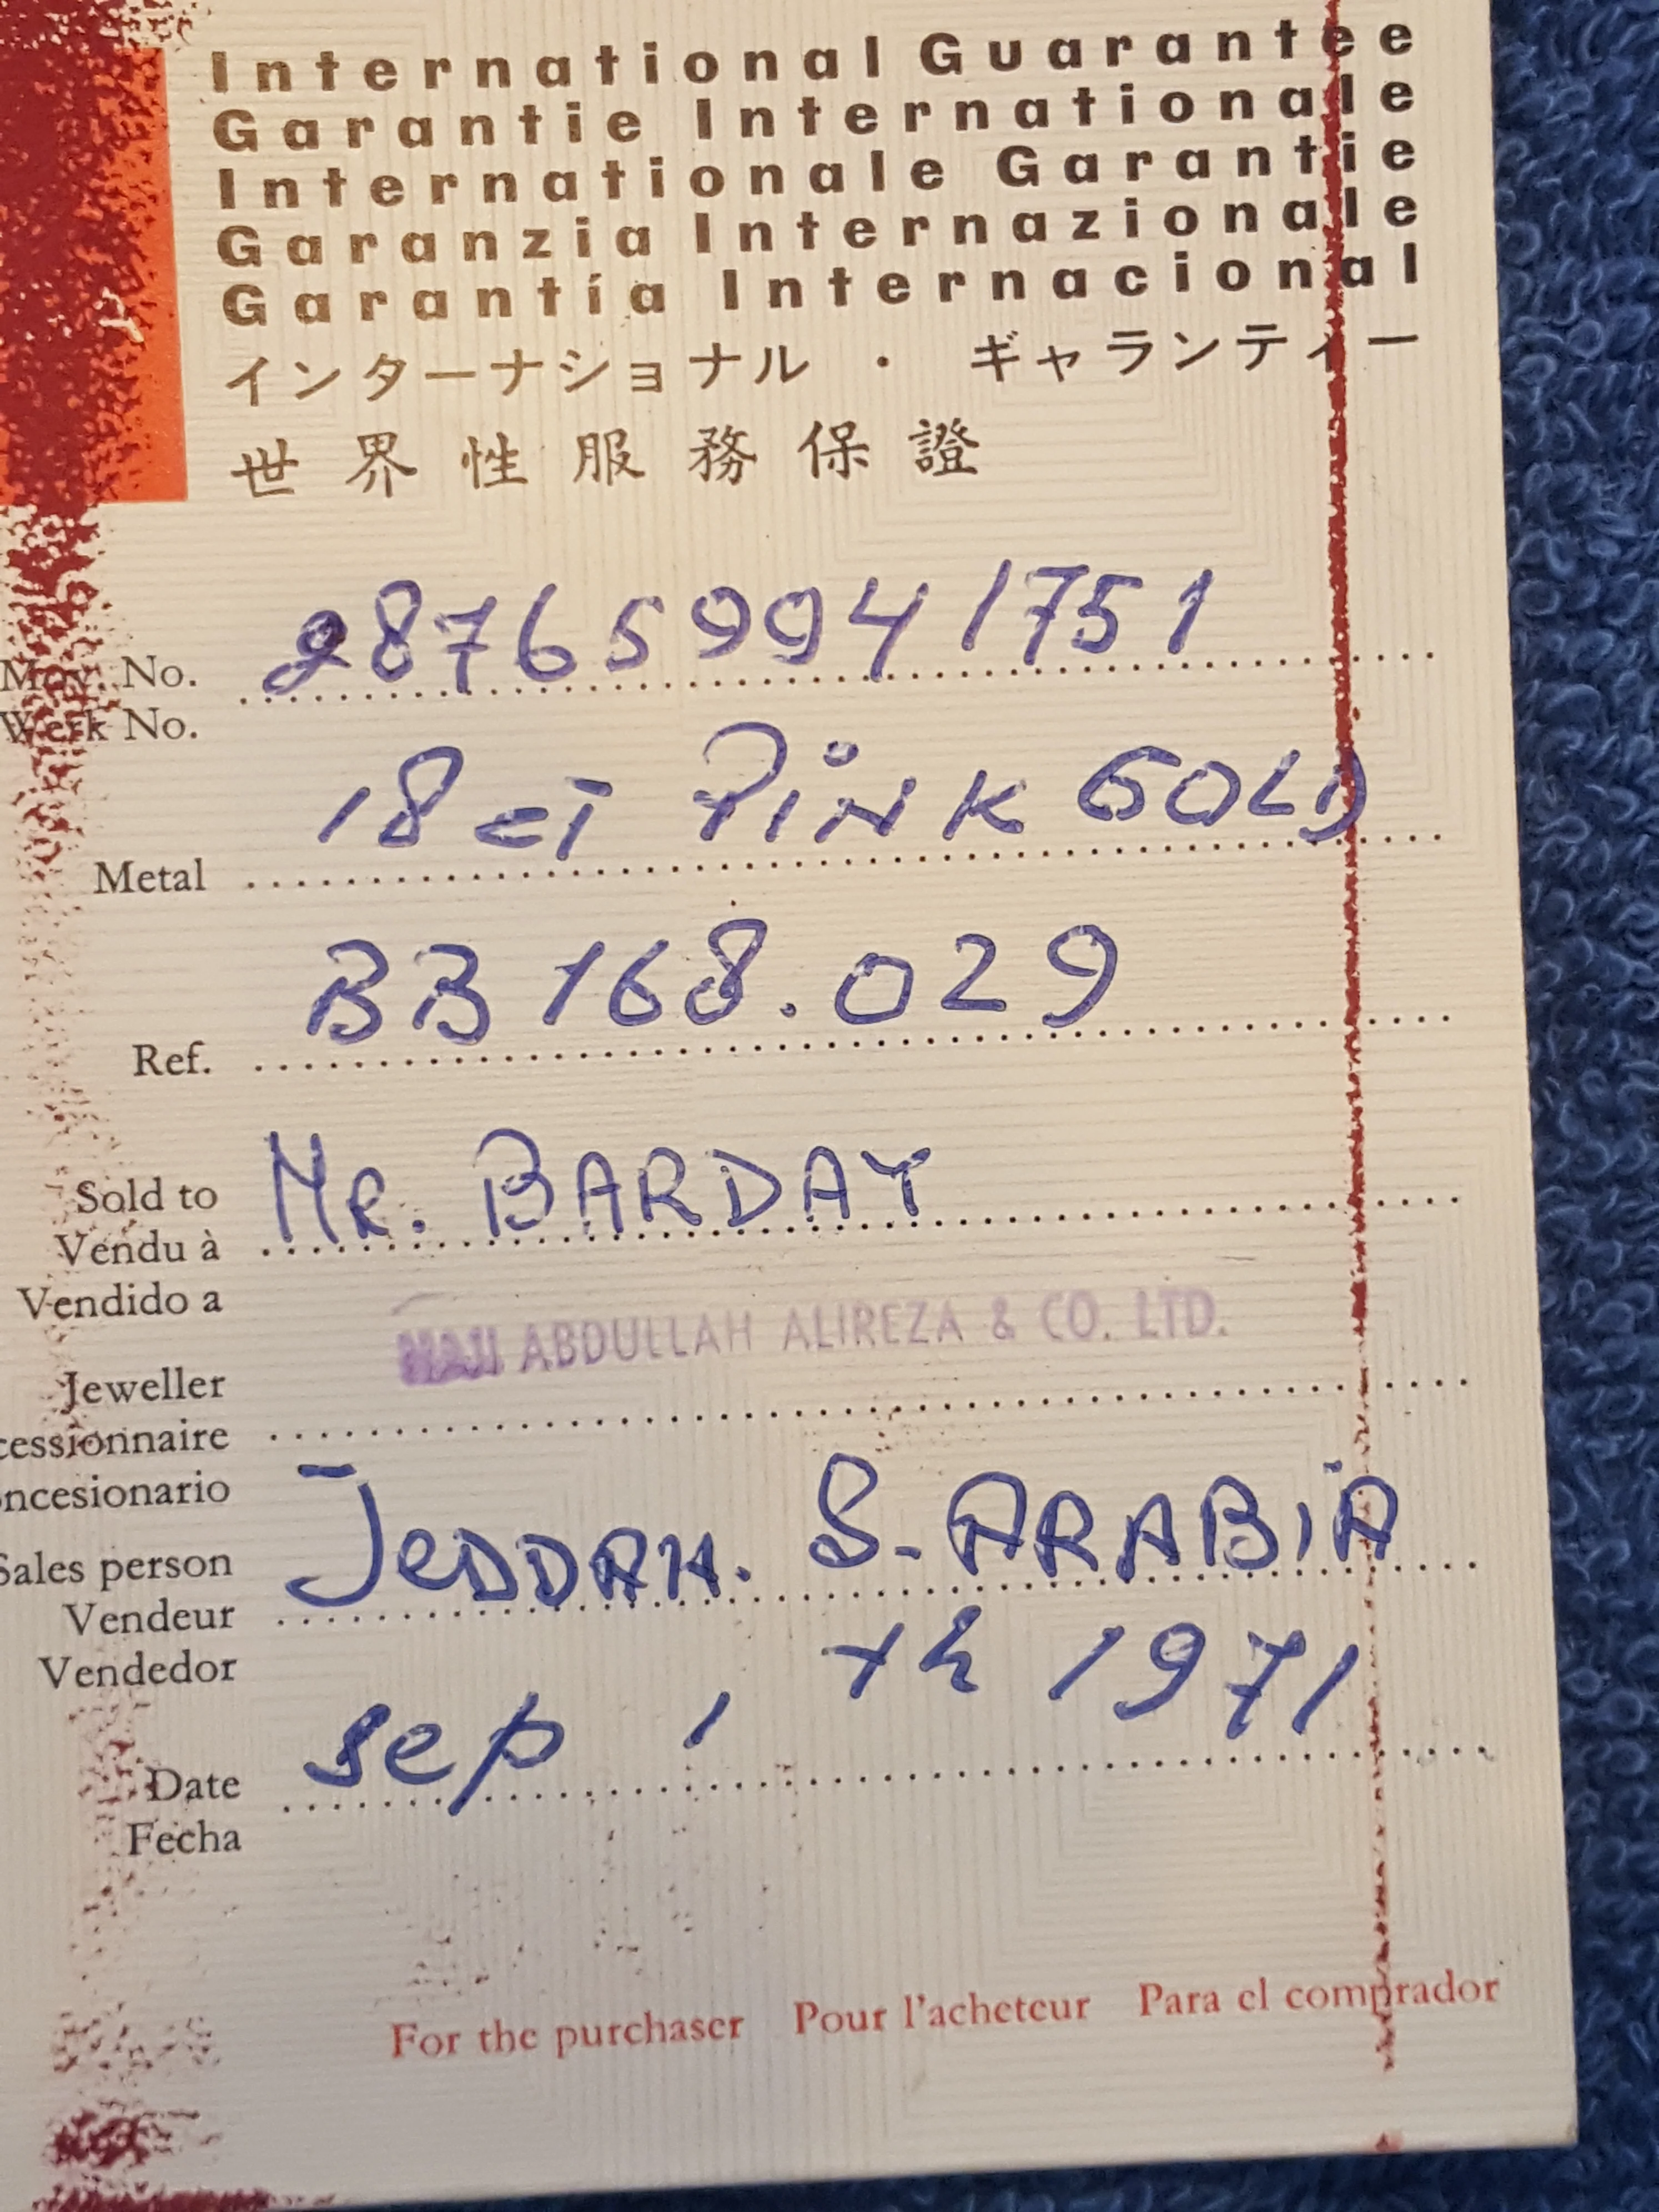 International Guarantee
Garantie Internationale
Internationale Garantie
Garanzia Internazionale
Garantía Internacional
インターナショナル・ギャランティー
世界性服務保證
Mov. No. 28765994 1751
Werk No.
Metal 18 CT PiNK GOLD
Ref. BB 168.029
Sold to MR. BARDAY
Vendu à
Vendido a
HAJI ABDULLAH ALIREZA & CO. LTD.
Jeweller
cessionnaire
ncesionario
Sales person JeDDAH. S-ARABiA
Vendeur
Vendedor
Date sep , th 1971
Fecha
For the purchaser Pour l'acheteur Para el comprador